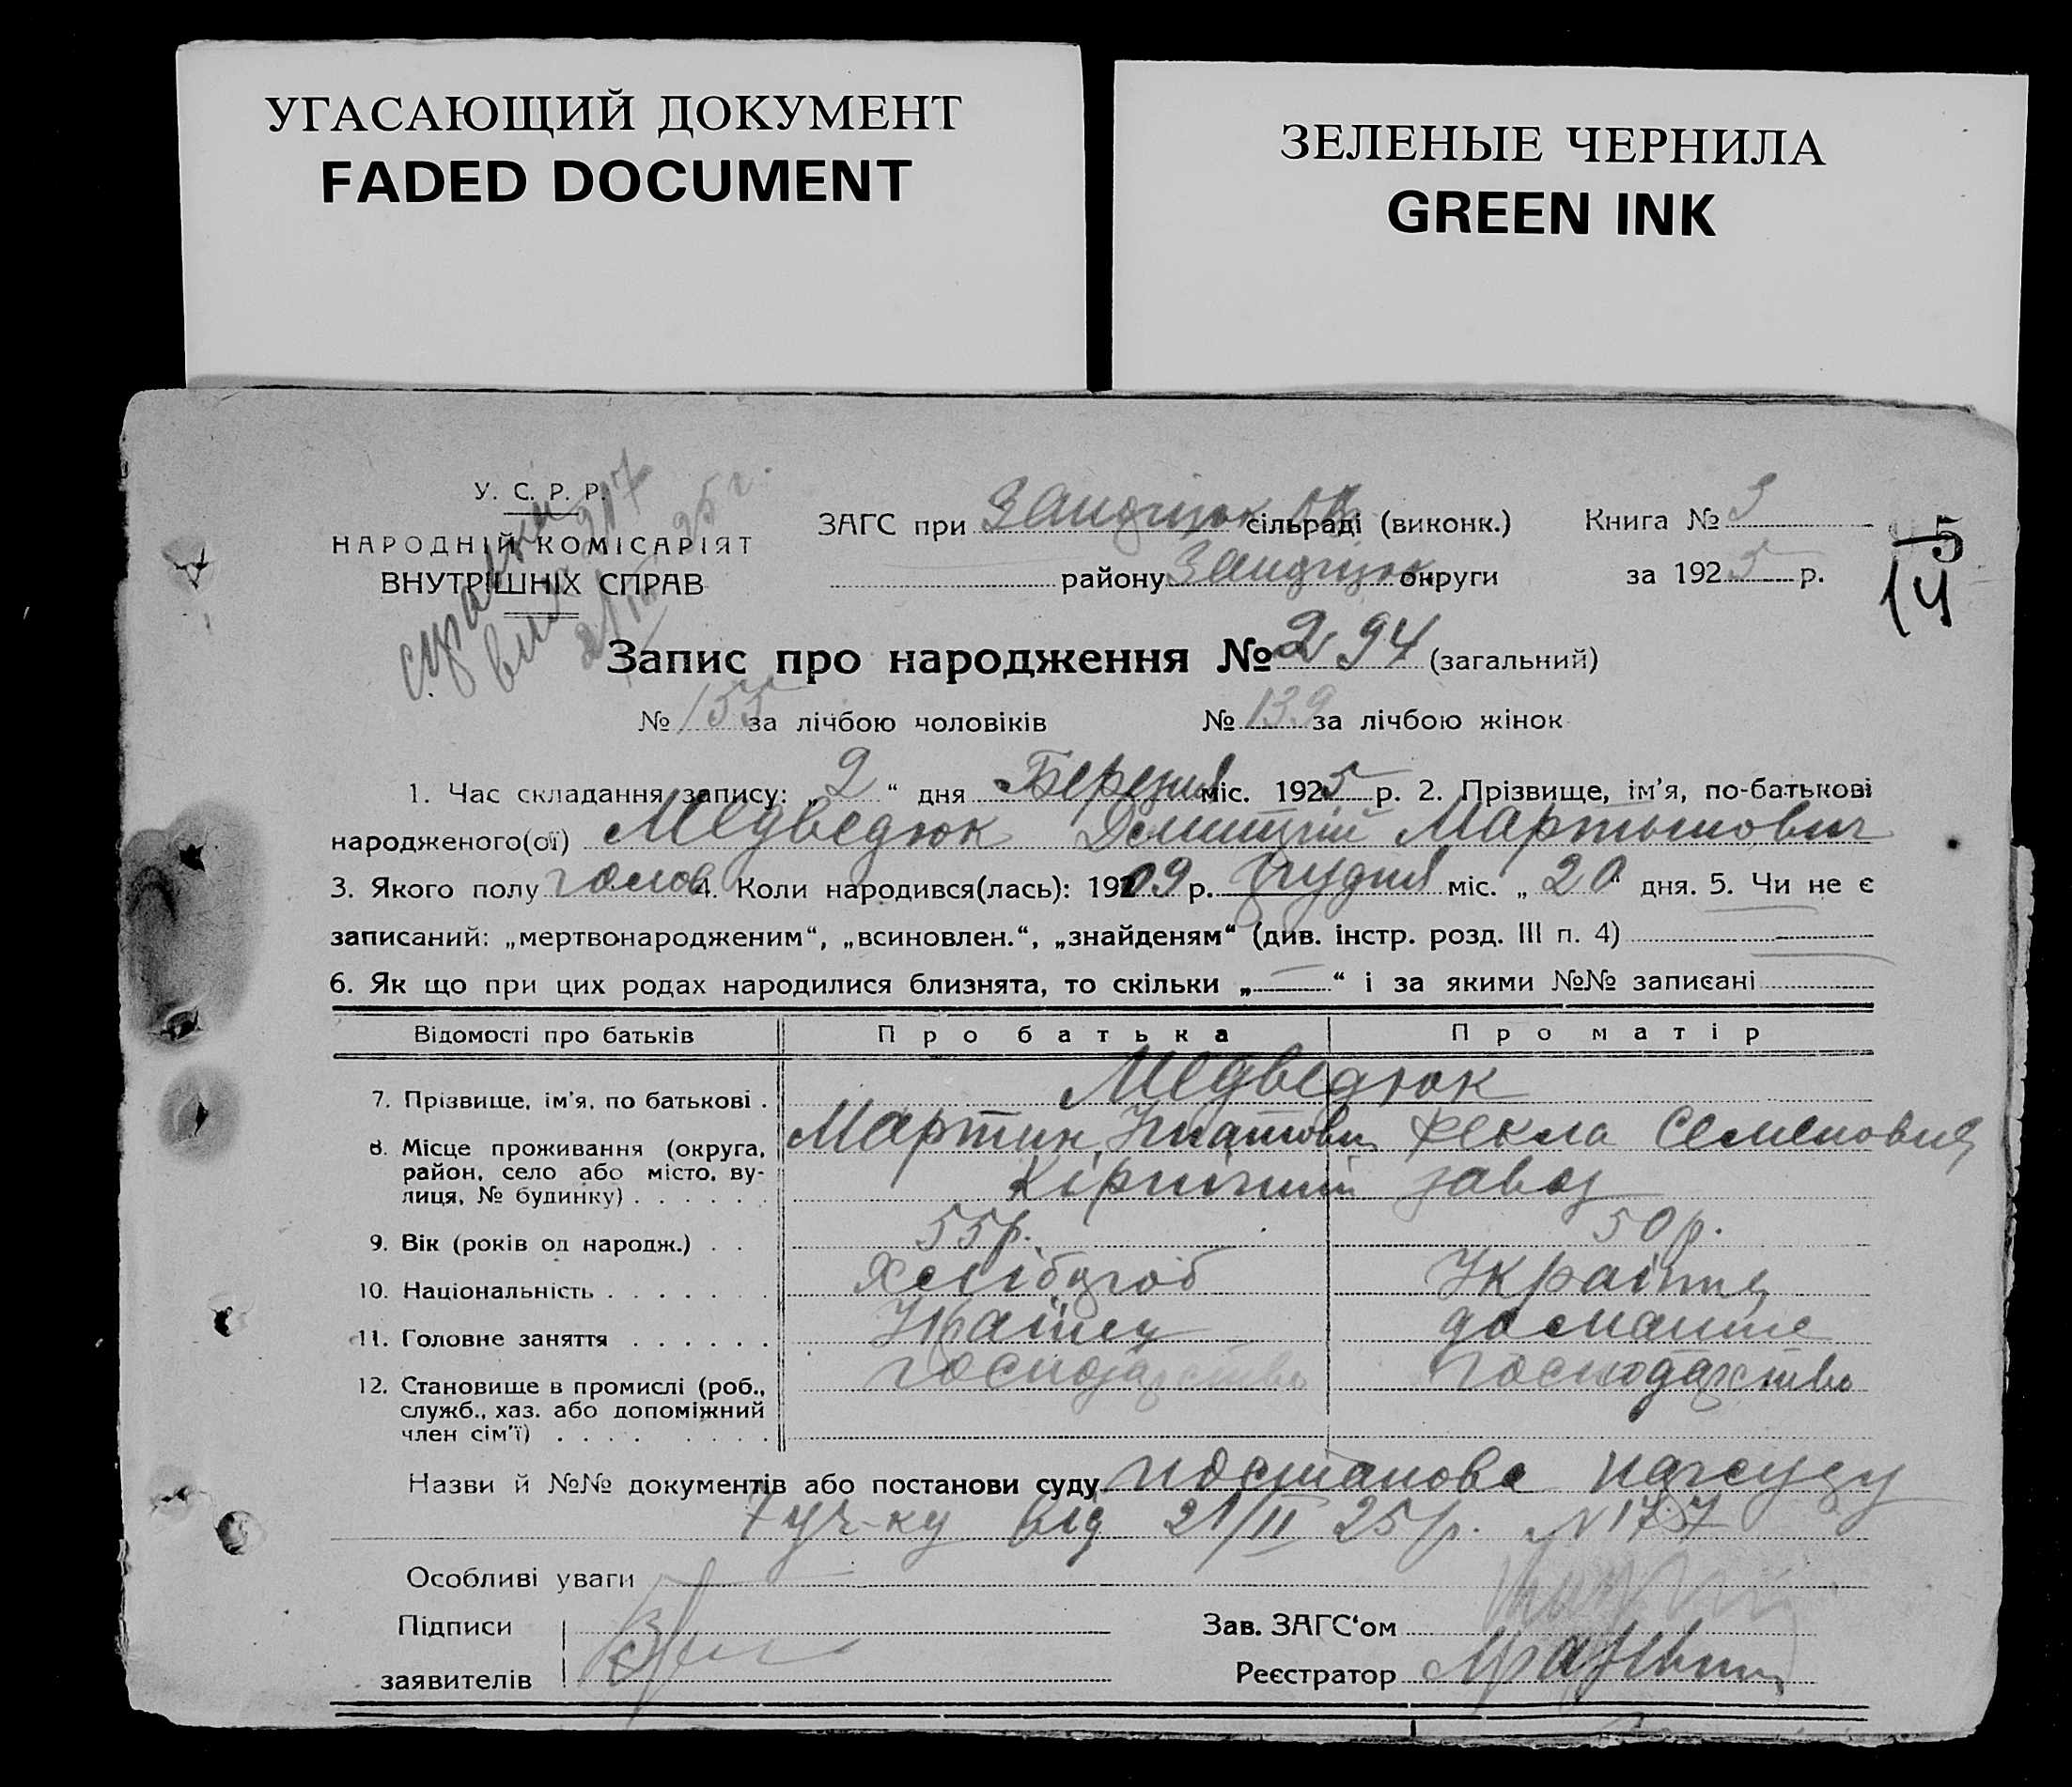 УГАСАЮЩИЙ ДОКУМЕНТ
FADED DOCUMENT
ЗЕЛЕНЫЕ ЧЕРНИЛА
GREEN INK
У. С. Р. Р.
НАРОДНІЙ КОМІСАРІЯТ
ВНУТРІШНІХ СПРАВ
ЗАГС при сільраді (виконк.)
Книга № 3
району округи
за 1925 р.
5
14
Запис про народження № 294 (загальний)
№ 155 за лічбою чоловіків № 139 за лічбою жінок
1. Час складання запису: „ 2 “ дня Березня міс. 1925 р. 2. Прізвище, ім’я, по-батькові
народженого(ої) Медведюк Демитрій Мартынович
3. Якого полу 4. Коли народився(лась): 1909 р. Грудня міс. „ 20 “ дня. 5. Чи не є
записаний: „мертвонародженим“, „всиновлен.“, „знайденям“ (див. інстр. розд. III п. 4)
6. Як що при цих родах народилися близнята, то скільки „ — “ і за якими №№ записані
Відомості про батьків Про батька Про матір
Медведюк
7. Прізвище, ім’я, по батькові .
Мартин Фекла Семеновна
8. Місце проживання (округа,
район, село або місто, ву-
лиця, № будинку) . . . . . .
Кірпічний завод
9. Вік (років од народж.) . . 55р. 50р.
10. Національність . . . . . . . Хлібороб
11. Головне заняття . . . . . . домашнє
12. Становище в промислі (роб.,
служб., хаз. або допоміжний
член сім’ї) . . . . . . . .
господарство господарство
Назви й №№ документів або постанови суду постанова нарсуду
7 уч-ку від 21/II 25р. N 1737
Особливі уваги
Підписи
заявителів
Зав. ЗАГС‘ом
Реєстратор